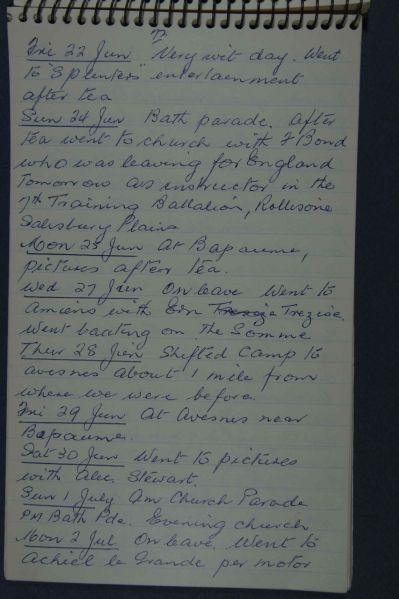 77
Fri 22 Jun Very wet day. Went
to "Splinters" entertainment
after tea
Sun 24 Jun Bath parade. After
tea went to church with F Bond
who was leaving for England
tomorrow as instructor in the
7th Training Battalion, Rollestone
Salisbury Plains
Mon 25 Jun At Bapaume,
pictures after tea.
Wed 27 Jun On leave Went to
Amiens with Ern Trezise.
Went boating on the Somme
Thur 28 Jun Shifted Camp to
Avesnes about 1 mile from
where we were before.
Fri 29 Jun At Avesnes near
Bapaume.
Sat 30 Jun Went to pictures
with Alec. Stewart.
Sun 1 July Am Church Parade
PM Bath Pde. Evening church
Mon 2 Jul On leave. Went to
Achiel le Grande per motor